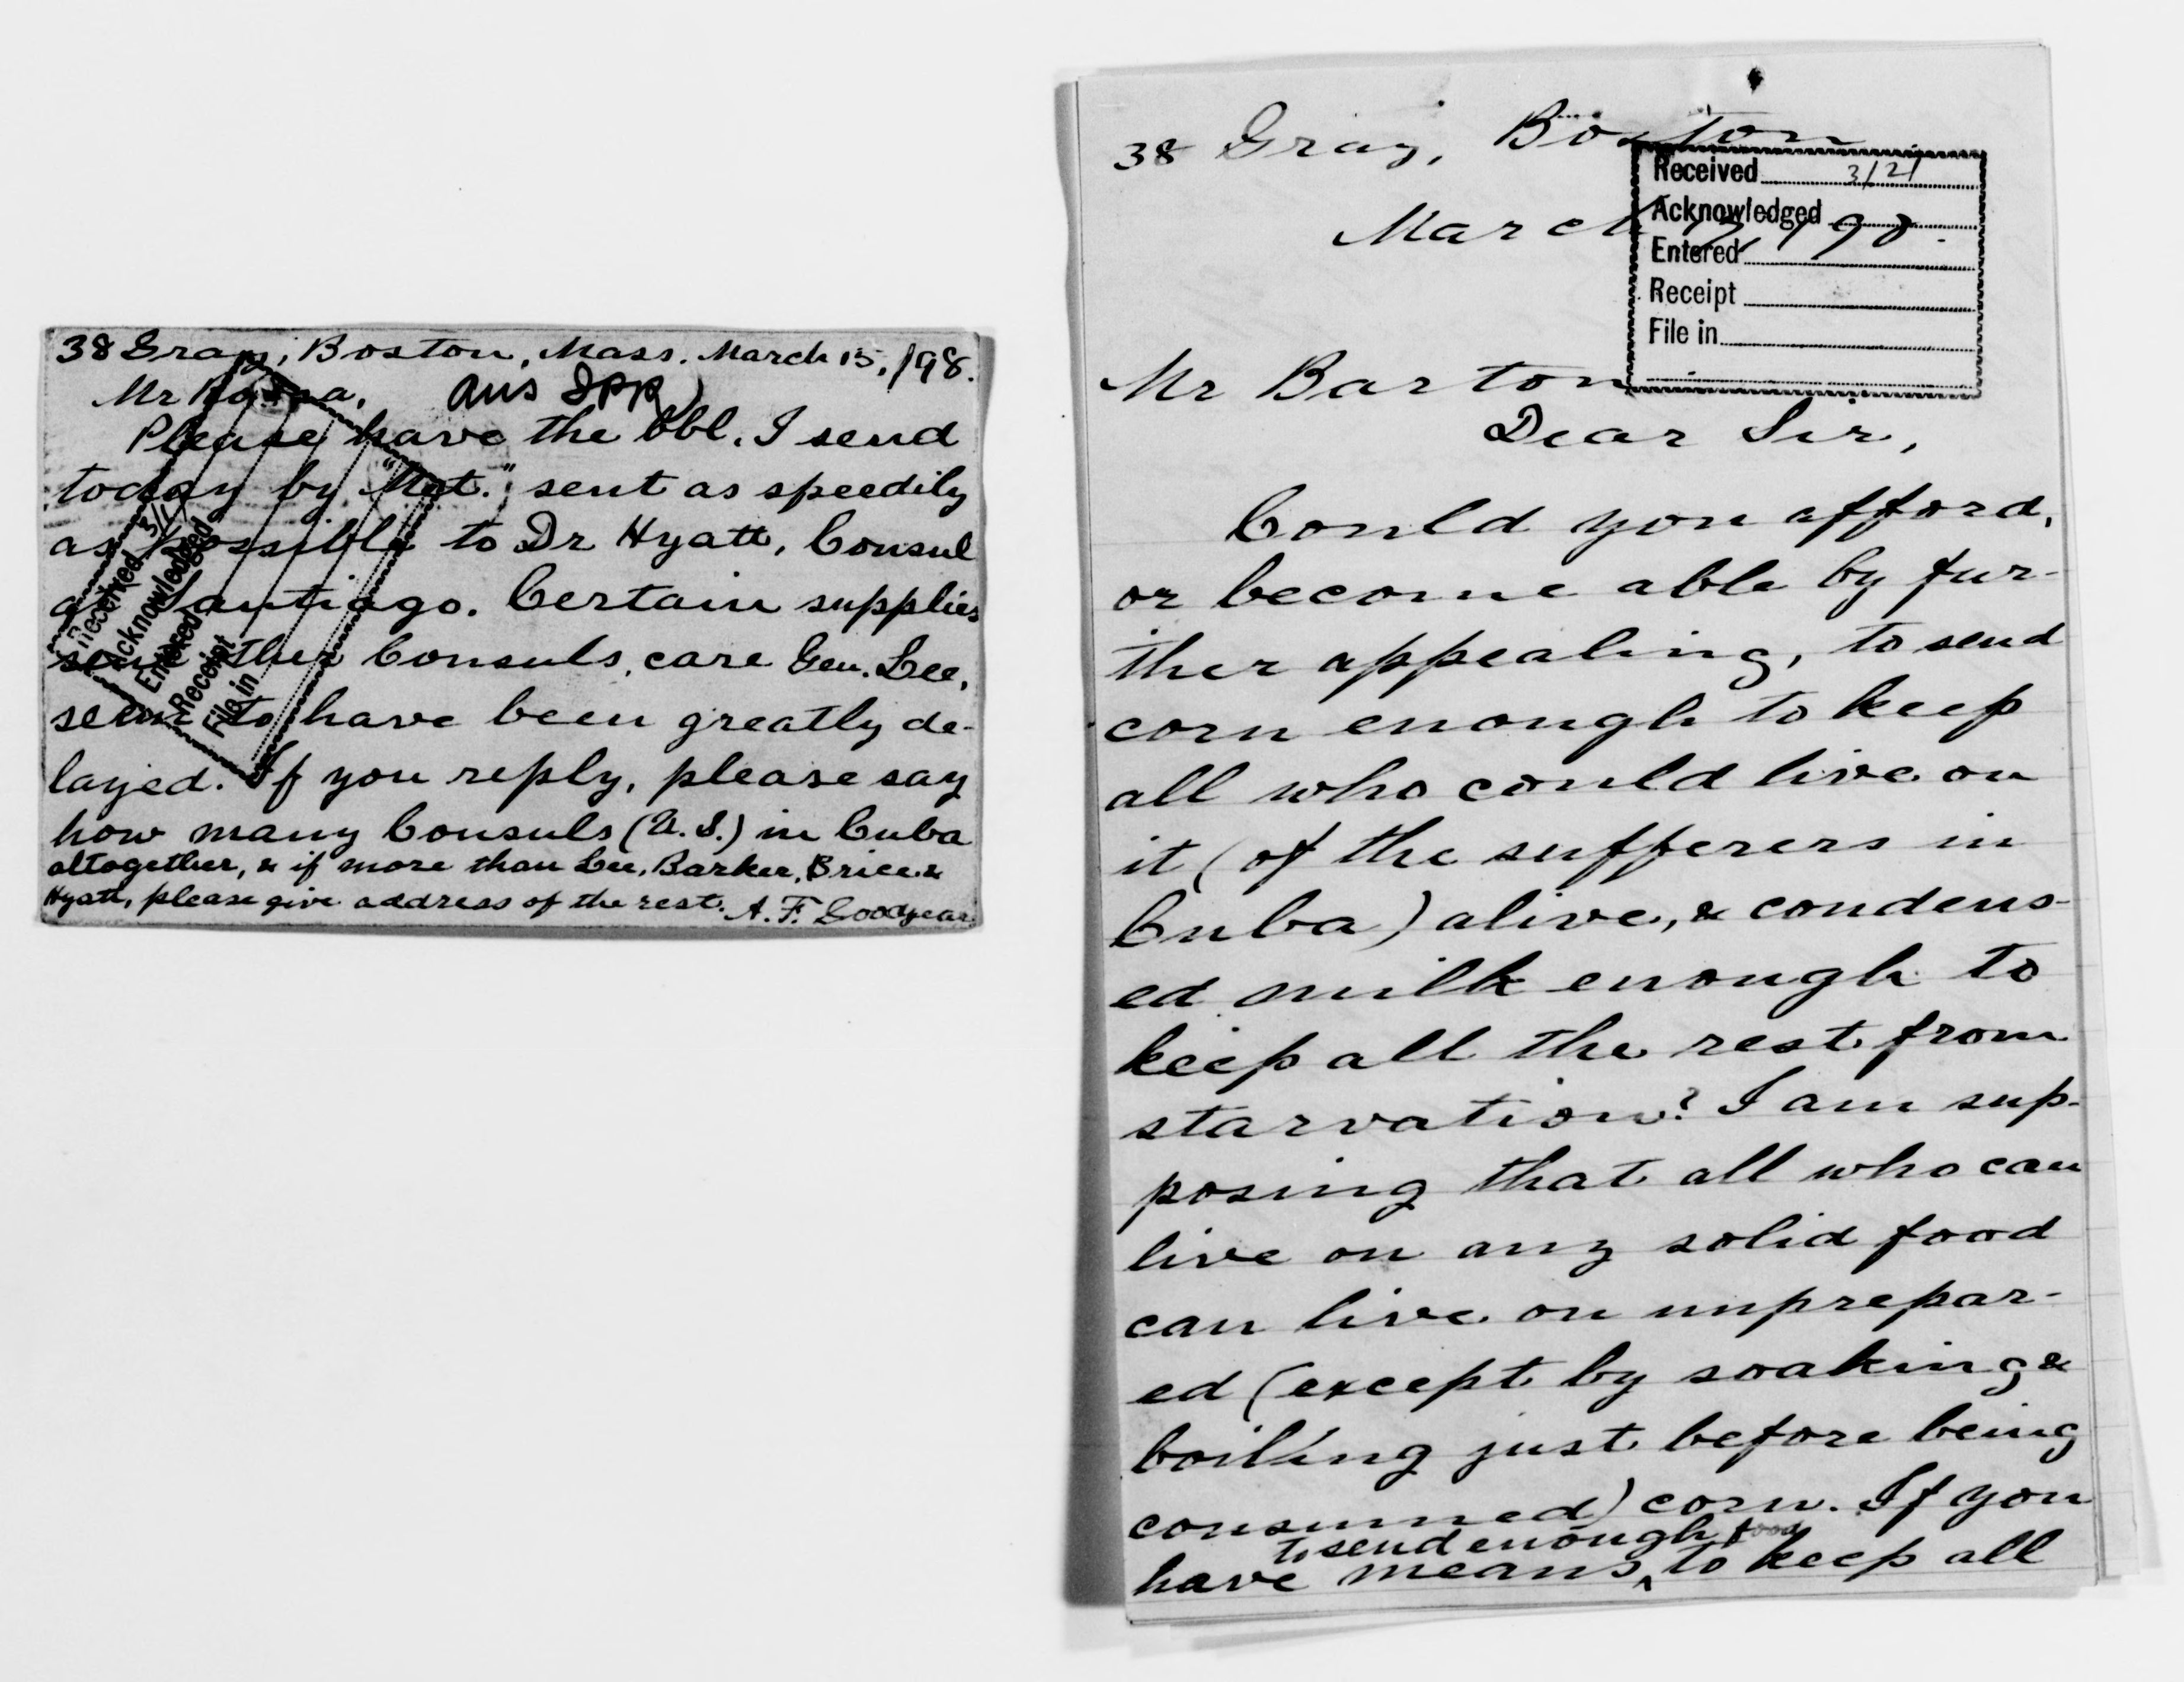 38 Gray, Boston, Mass. March 15, /98.
Mr
ans
Please have the bbl. I send
today by "Met." sent as speedily
as possible to Dr Hyatt, Consul
at Santiago. Certain supplies
sent other Consuls, care Gen. Lee,
seem to have been greatly de-
layed. If you reply, please say
how many Consuls (U.S.) in Cuba
altogether, & if more than Lee, Barker, Brice &
Hyatt, please give address of the rest. A. F. Goodyear
Received
Acknowledged
Entered
Receipt
File in
38 Gray, Boston
March /98.
Received 3/21
Acknowledged
Entered
Receipt
File in
Mr Barton
Dear Sir,
Could you afford,
or become able by fur-
ther appealing, to send
corn enough to keep
all who could live on
it (of the sufferers in
Cuba) alive, & condens-
ed milk enough to
keep all the rest from
starvation? I am sup-
posing that all who can
live on any solid food
can live on unprepar-
ed (except by soaking &
boiling just before being
consumed) corn. If you
to send enough food
have means ^ to keep all